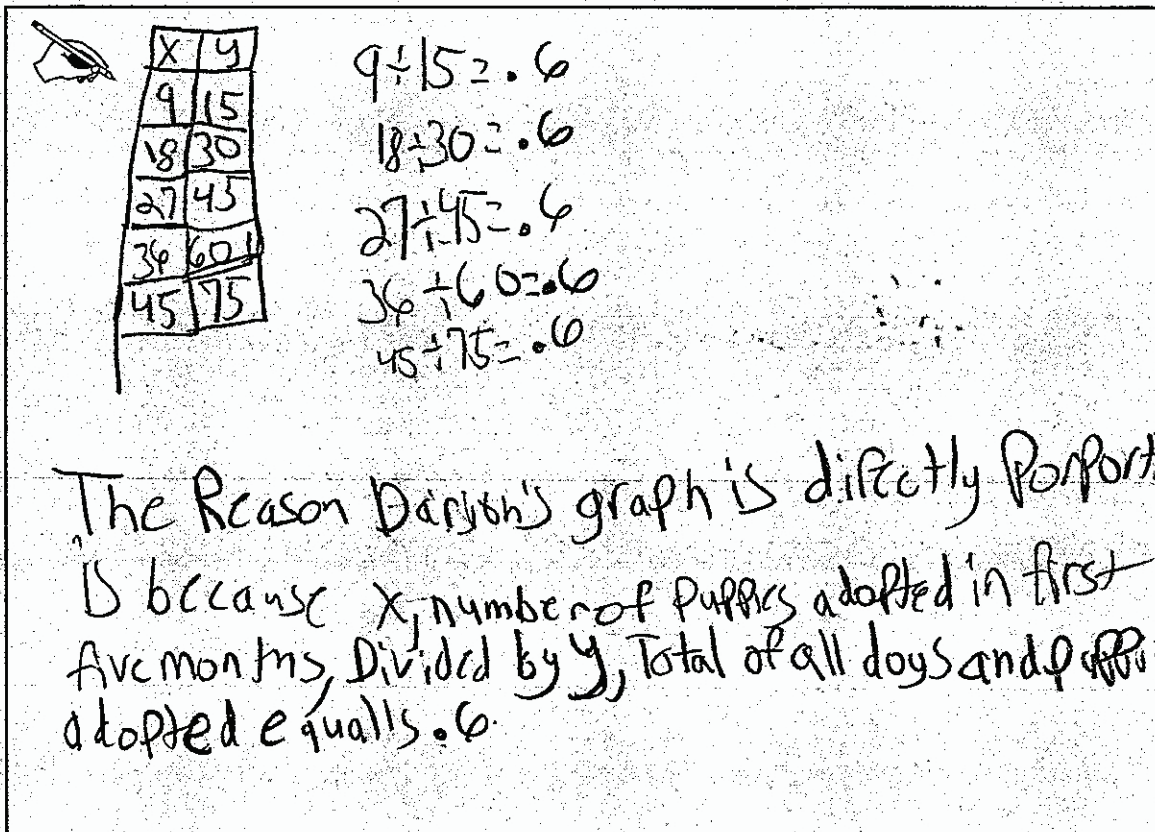 x y
9 15
18 30
27 45
36 60
45 75
9÷15=.6
18÷30=.6
27÷45=.6
36÷60=.6
45÷75=.6
The Reason Darjion's graph is dirfectly Porport
is because x, number of Puppies adopted in first
five months, Divided by y, Total of all doys and puppi
adopted equalls .6.